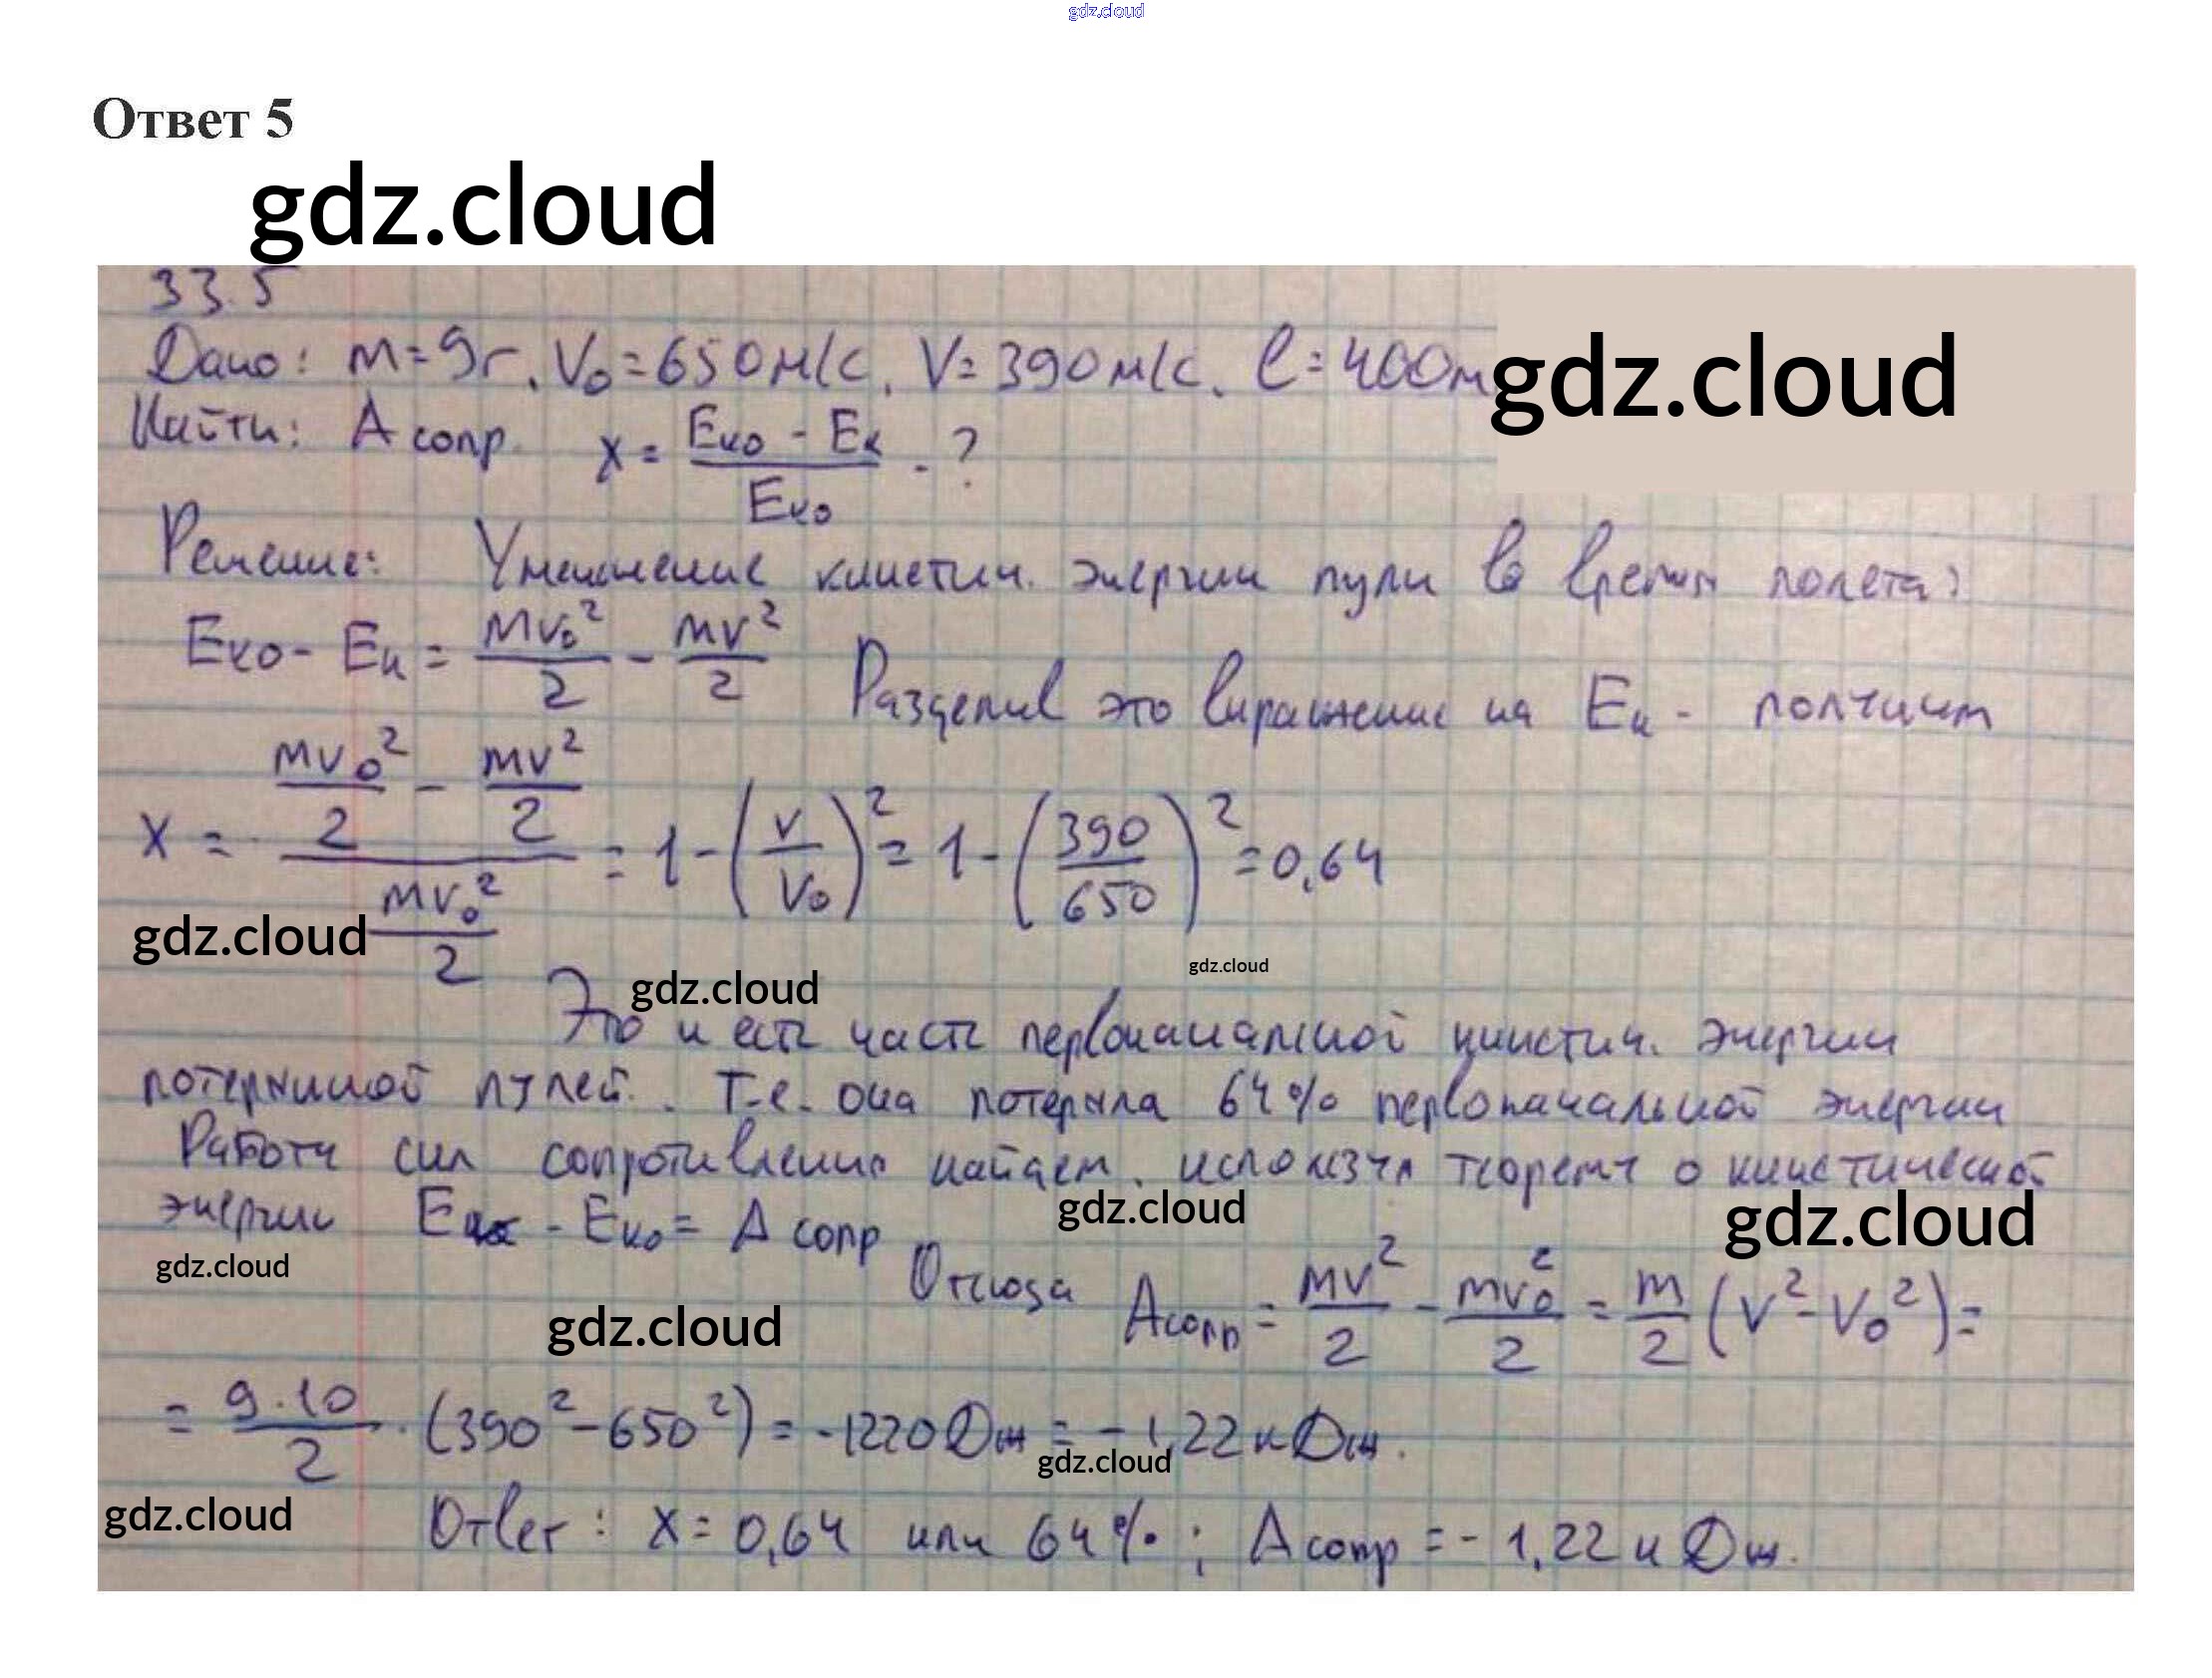 gdz.cloud
Ответ 5
gdz.cloud
33.5
Дано: m=9г, V₀=650м/с, V=390м/с, l=400м
gdz.cloud
Найти: A сопр. x = (Eк₀ - Eк)/Eк₀ - ?
Решение: Уменьшение кинетич. энергии пули во время полета:
Eк₀ - Eк = mv₀²/2 - mv²/2 Разделив это выражение на Eк - получим
x = (mv₀²/2 - mv²/2)/(mv₀²/2) = 1-(v/v₀)² = 1-(390/650)² = 0,64
gdz.cloud
gdz.cloud
gdz.cloud
Это и есть часть первоначальной кинетич. энергии
потерянной пулей. Т.е. она потеряла 64% первоначальной энергии
Работу сил сопротивления найдем, используя теорему о кинетической
энергии Eк - Eк₀ = A сопр
gdz.cloud
gdz.cloud
gdz.cloud
Отсюда Aсопр = mv²/2 - mv₀²/2 = m/2 (v²-v₀²)=
gdz.cloud
= 9·10/2 · (390²-650²) = -1220Дж = -1,22кДж.
gdz.cloud
gdz.cloud
Ответ: x=0,64 или 64%; A сопр = -1,22кДж.